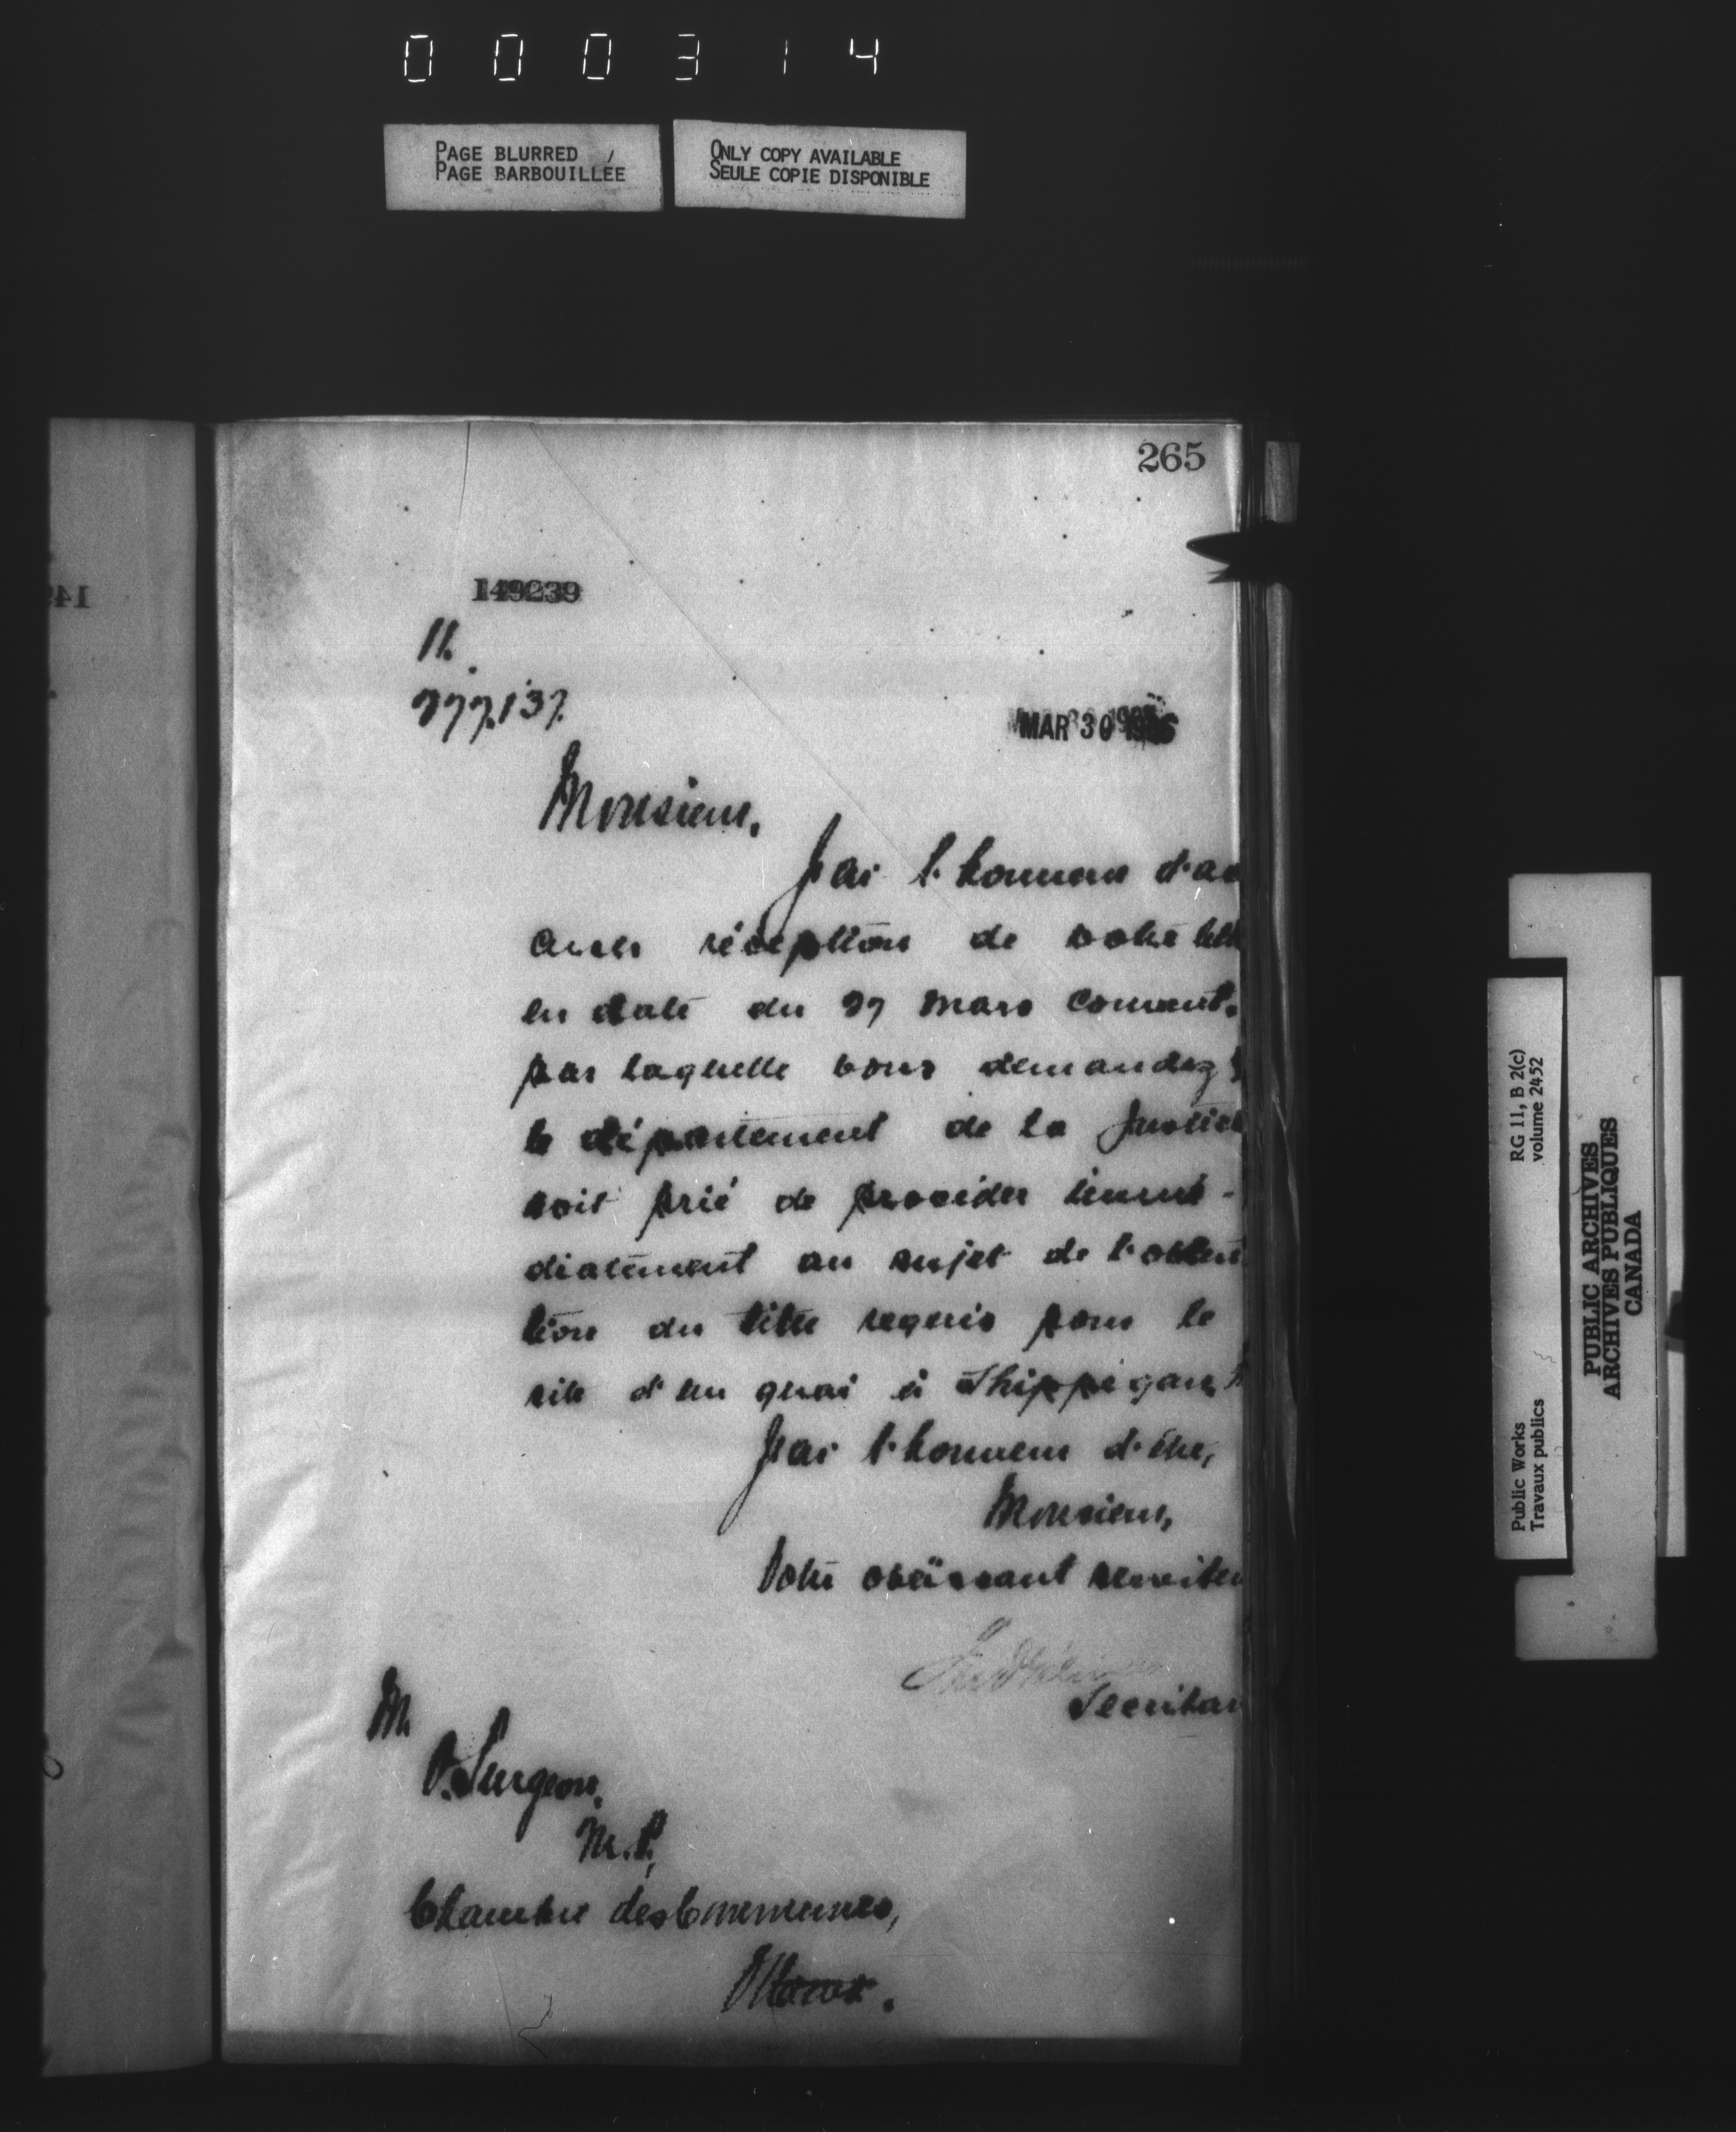 000314
PAGE BLURRED
PAGE BARBOUILLÉE
ONLY COPY AVAILABLE
SEULE COPIE DISPONIBLE
265
149239
11.
277,137.
MAR 30
Monsieur,
J'ai l'honneur d'ac
cuser réception de votre lett
en date du 27 mars courant,
par laquelle vous demandez q
le département de la Justice
soit prié de procéder immé-
diatement au sujet de l'obten
tion du titre requis pour le
site d'un quai à Shippigan,
J'ai l'honneur d'être,
Monsieur,
Votre obéissant serviteu
Secrétair
M.
O. Turgeon,
M.P.,
Chambre des Communes,
Ottawa.
RG 11, B 2(c)
volume 2452
Public Works
Travaux publics
PUBLIC ARCHIVES
ARCHIVES PUBLIQUES
CANADA